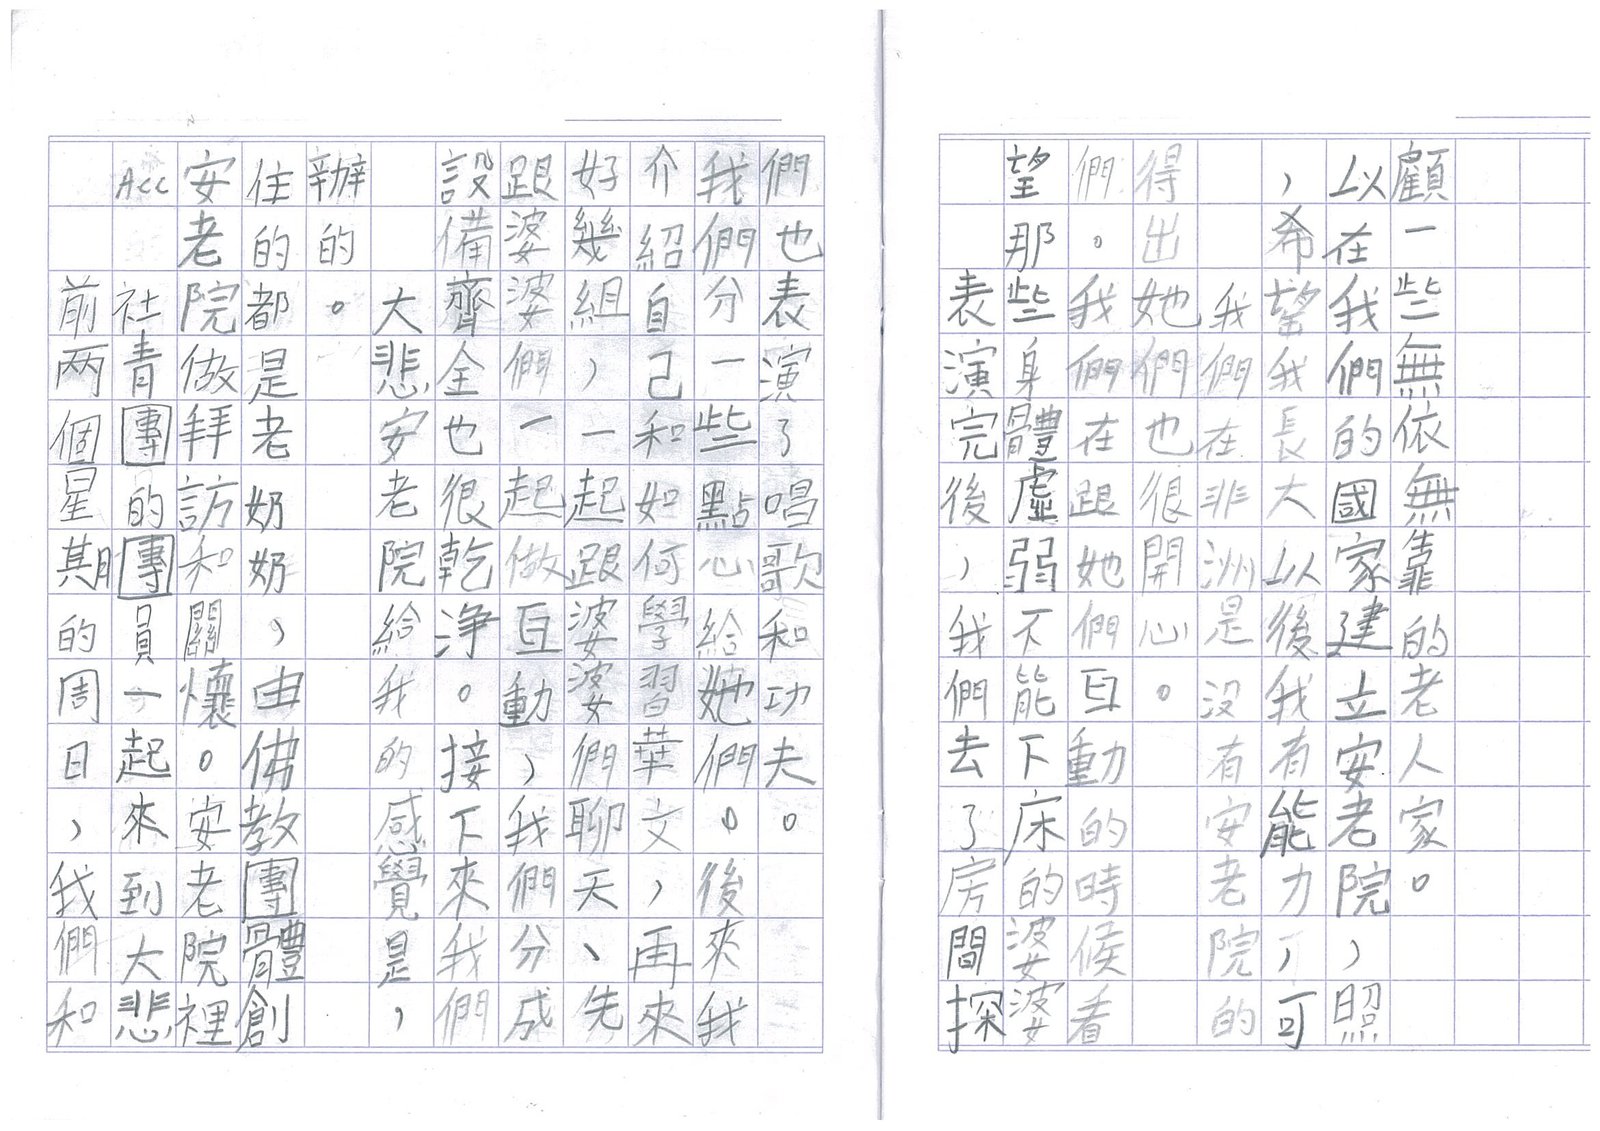 前两個星期的周日，我們和
ACC社青團的團員一起來到大悲
安老院做拜訪和關懷。安老院裡
住的都是老奶奶，由佛教團體創
辦的。
大悲安老院給我的感覺是，
設備齊全也很乾净。接下來我們
跟婆婆們一起做互動，我們分成
好幾組，一起跟婆婆們聊天、先
介紹自己和如何學習華文，再來
我們分一些點心給她們。後來我
們也表演了唱歌和功夫。
表演完後，我們去了房間探
望那些身體虛弱不能下床的婆婆
們。我們在跟她們互動的時候看
得出她們也很開心。
我們在非洲是没有安老院的
，希望我長大以後我有能力，可
以在我們的國家建立安老院，照
顧一些無依無靠的老人家。